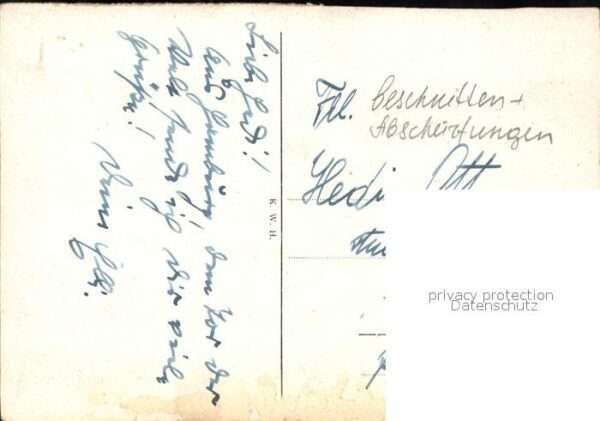 Liebe Hedi!
Aus Hamburg, dem Tor der
Welt send ich Dir viele
Grüße!
Deine Elli.
K. W. H.
Frl. Beschnitten +
Abschürfungen
Hedi Ott
privacy protection
Datenschutz